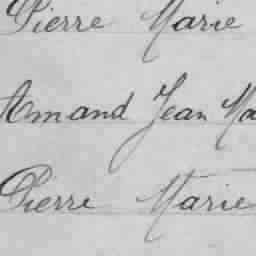 Pierre Marie
Armand Jean Ma
Pierre Marie